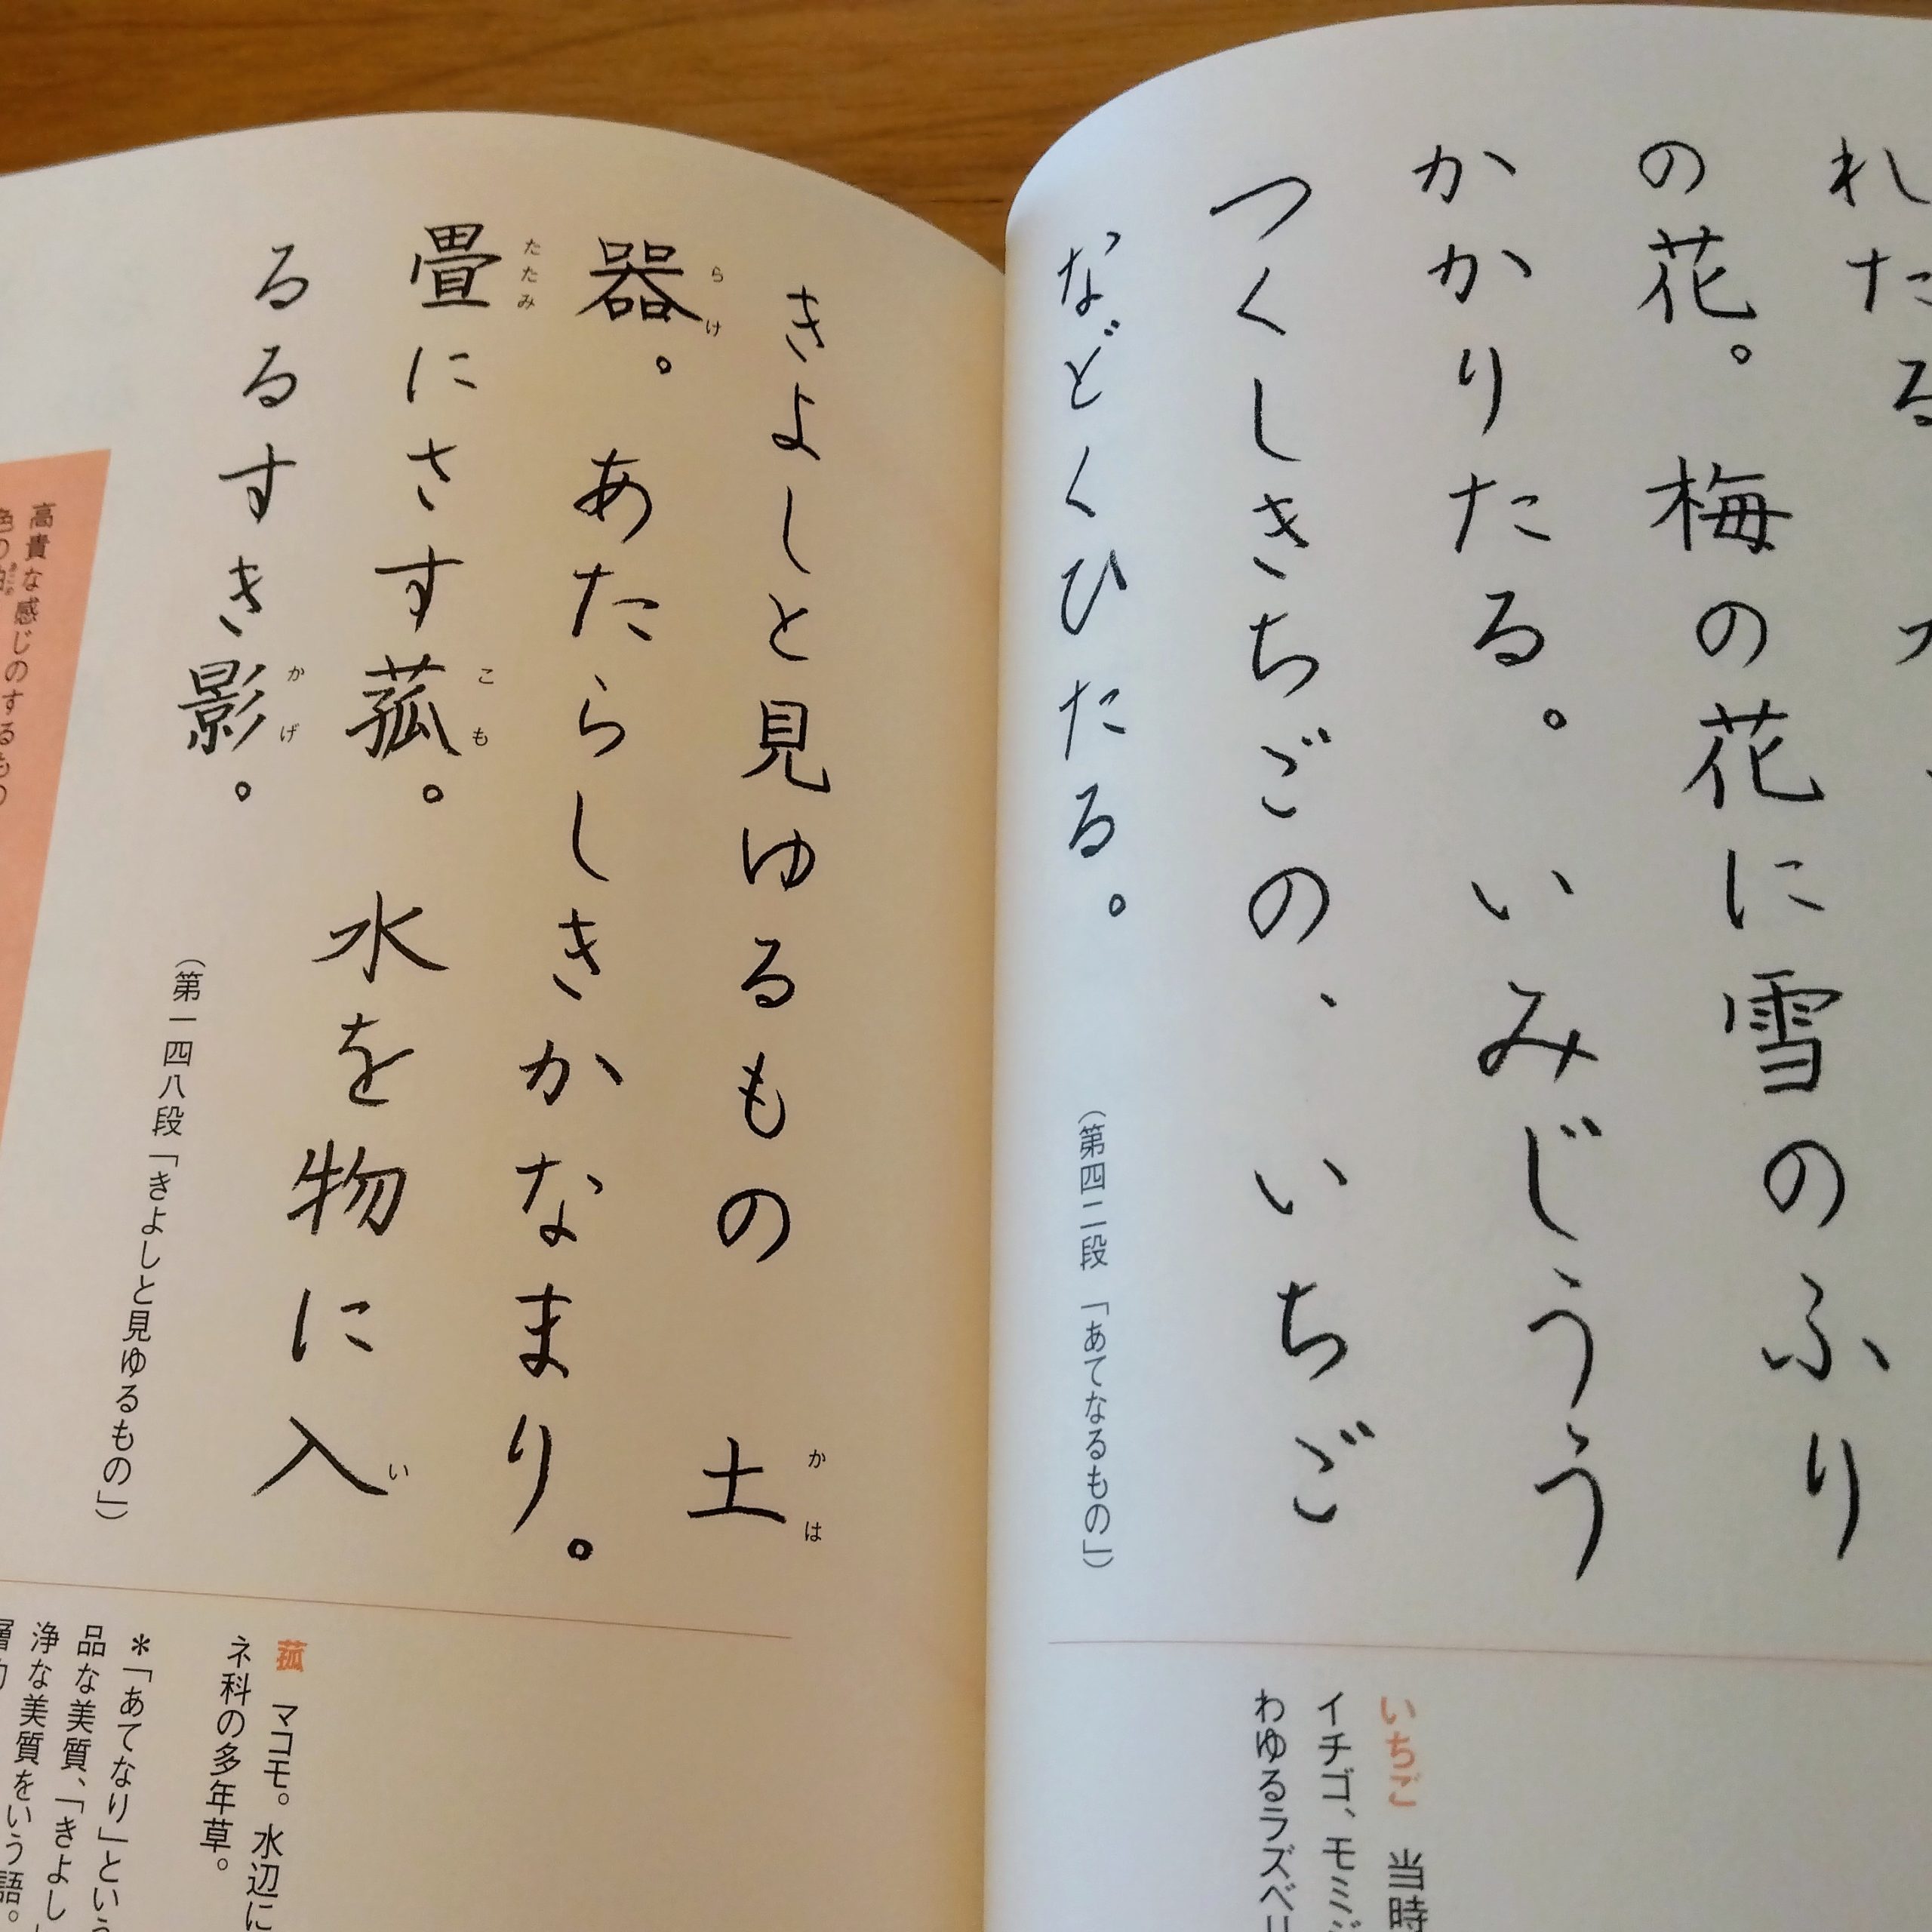 れたる
の花。梅の花に雪のふり
かかりたる。いみじうう
つくしきちごの、いちご
などくひたる。
(第四二段「あてなるもの」)
いちご 当時
イチゴ、モミジ
わゆるラズベリ
きよしと見ゆるもの 土
かは
器。あたらしきかなまり。
らけ
畳にさす菰。水を物に入
たたみ
こも
い
るるすき影。
かげ
(第一四八段「きよしと見ゆるもの」)
高貴な感じのするもの
菰 マコモ。水辺に
ネ科の多年草。
*「あてなり」という
品な美質、「きよし」
浄な美質をいう語。